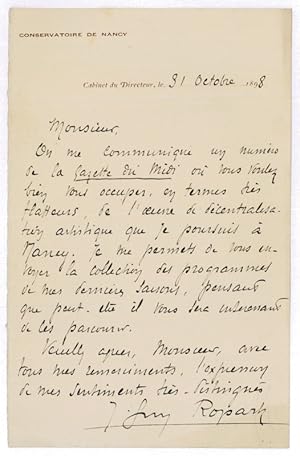 CONSERVATOIRE DE NANCY
Cabinet du Directeur, le 31 Octobre 1898
Monsieur,
On me communique un numéro
de la Gazette du Midi où vous voulez
bien vous occuper, en termes très
flatteurs, de l'œuvre de décentralisa-
tion artistique que je poursuis à
Nancy. Je me permets de vous en-
voyer la collection des programmes
de mes dernières saisons, pensant
que peut-être il vous sera intéressant
de les parcourir.
Veuillez agréer, Monsieur, avec
tous mes remerciements, l'expression
de mes sentiments très distingués
J Guy Ropartz